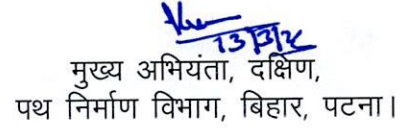 13/3/
मुख्य अभियंता, दक्षिण,
पथ निर्माण विभाग, बिहार, पटना।